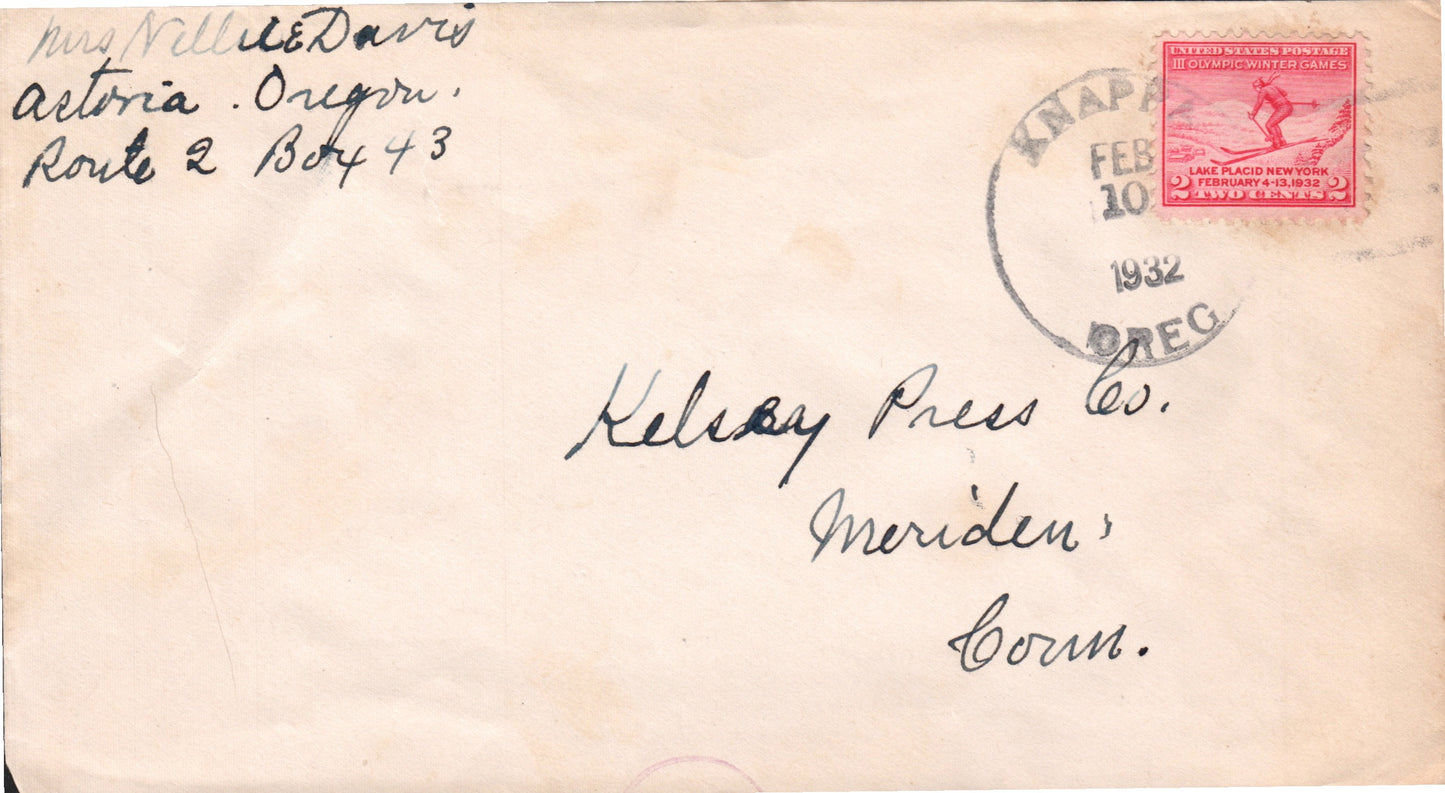 Mrs Nellie E Davis
Astoria. Oregon.
Route 2 Box 43
UNITED STATES POSTAGE
III OLYMPIC WINTER GAMES
LAKE PLACID NEW YORK
FEBRUARY 4-13, 1932
2 TWO CENTS 2
FEB
10
1932
OREG
Kelsey Press Co.
Meriden,
Conn.